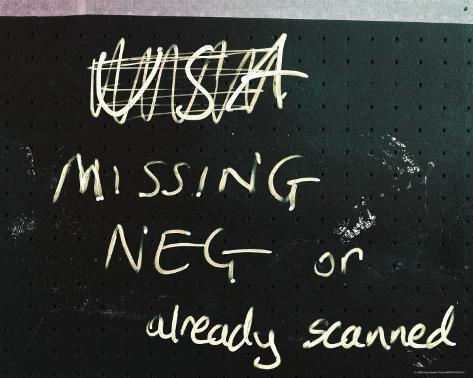 USA
MISSING
NEG or
already scanned